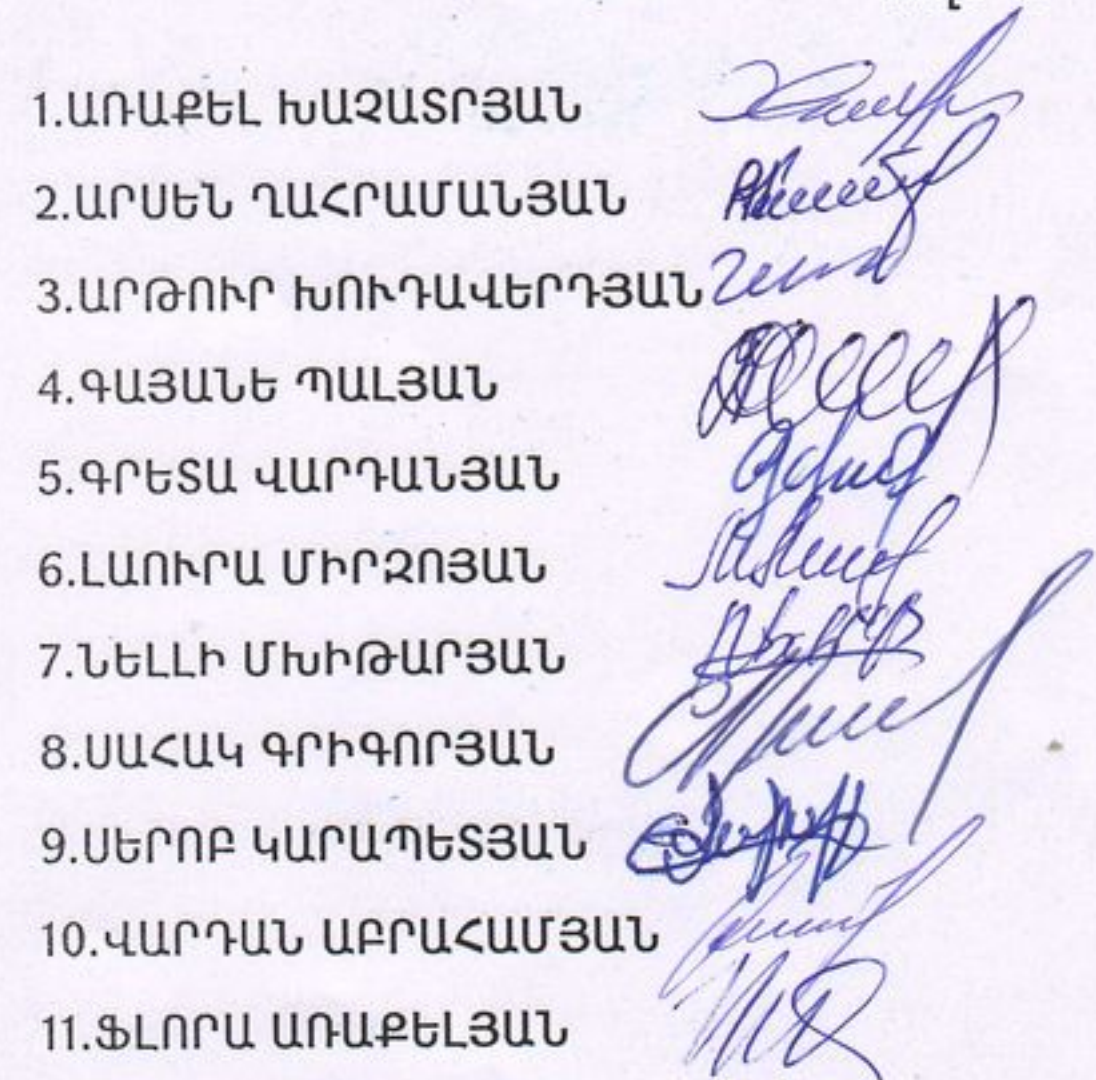 1.ԱՌԱՔԵԼ ԽԱՉԱՏՐՅԱՆ
2.ԱՐՍԵՆ ՂԱՀՐԱՄԱՆՅԱՆ
3.ԱՐԹՈՒՐ ԽՈՒԴԱՎԵՐԴՅԱՆ
4.ԳԱՅԱՆԵ ՊԱԼՅԱՆ
5.ԳՐԵՏԱ ՎԱՐԴԱՆՅԱՆ
6.ԼԱՈՒՐԱ ՄԻՐԶՈՅԱՆ
7.ՆԵԼԼԻ ՄԽԻԹԱՐՅԱՆ
8.ՍԱՀԱԿ ԳՐԻԳՈՐՅԱՆ
9.ՍԵՐՈԲ ԿԱՐԱՊԵՏՅԱՆ
10.ՎԱՐԴԱՆ ԱԲՐԱՀԱՄՅԱՆ
11.ՖԼՈՐԱ ԱՌԱՔԵԼՅԱՆ